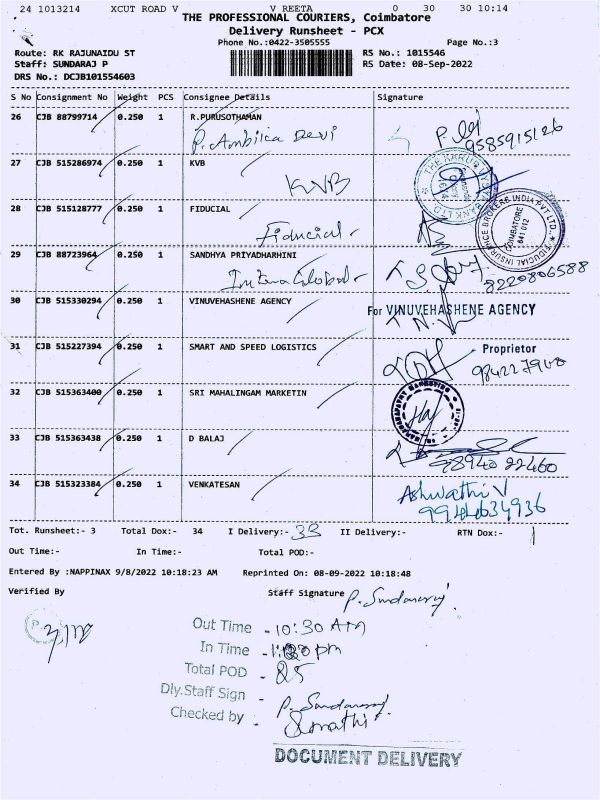 24 1013214 XCUT ROAD V V REETA 0 30 30 10:14
THE PROFESSIONAL COURIERS, Coimbatore
Delivery Runsheet - PCX
Phone No.:0422-3505555 Page No.:3
Route: RK RAJUNAIDU ST RS No.: 1015546
Staff: SUNDARAJ P RS Date: 08-Sep-2022
DRS No.: DCJB101554603
S No Consignment No Weight PCS Consignee Details Signature
26 CJB 88799714 0.250 1 R.PURUSOTHAMAN
P. Ambika Devi
9585915126
27 CJB 515286974 0.250 1 KVB
KVB
28 CJB 515128777 0.250 1 FIDUCIAL
Fiducial
FIDUCIAL INSURANCE BROKERS INDIA PVT. LTD.
COIMBATORE
641 012
29 CJB 88723964 0.250 1 SANDHYA PRIYADHARHINI
8220806588
30 CJB 515330294 0.250 1 VINUVEHASHENE AGENCY
For VINUVEHASHENE AGENCY
31 CJB 515227394 0.250 1 SMART AND SPEED LOGISTICS
Proprietor
32 CJB 515363400 0.250 1 SRI MAHALINGAM MARKETIN
33 CJB 515363438 0.250 1 D BALAJ
98940 22460
34 CJB 515323384 0.250 1 VENKATESAN
Ashwathi V
Tot. Runsheet:- 3 Total Dox:- 34 I Delivery:- 33 II Delivery:- RTN Dox:- 1
Out Time:- In Time:- Total POD:-
Entered By :NAPPINAX 9/8/2022 10:18:23 AM Reprinted On: 08-09-2022 10:18:48
Verified By Staff Signature P. Sundararaj
Out Time - 10:30 AM
In Time -
Total POD - 25
Dly.Staff Sign - P. Sundararaj
Checked by -
DOCUMENT DELIVERY